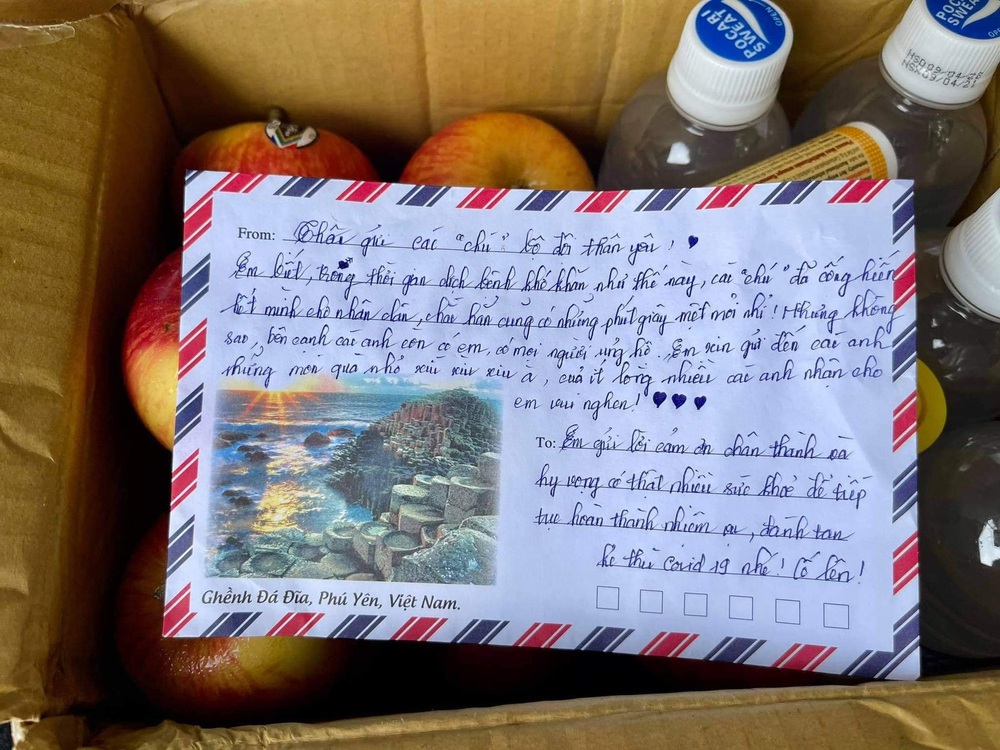 POCARI
SWEAT
OPEN
POCARI
SWEAT
HSD09/04/2
NSX09/04/21
From: Chào gửi các "chú" bộ đội thân yêu!
Em biết, trong thời gian dịch bệnh khó khăn như thế này, các "chú" đã cống hiến
hết mình cho nhân dân, chắc hẳn cũng có những phút giây mệt mỏi nhỉ! Nhưng không
sao, bên cạnh các anh còn có em, có mọi người ủng hộ. Em xin gửi đến các anh
những món quà nhỏ xíu xíu xiu à, của ít lòng nhiều các anh nhận cho
em vui nghen!
To: Em gửi lời cảm ơn chân thành và
hy vọng có thật nhiều sức khoẻ để tiếp
tục hoàn thành nhiệm vụ, đánh tan
kẻ thù covid 19 nhé! Cố lên!
Ghềnh Đá Đĩa, Phú Yên, Việt Nam.